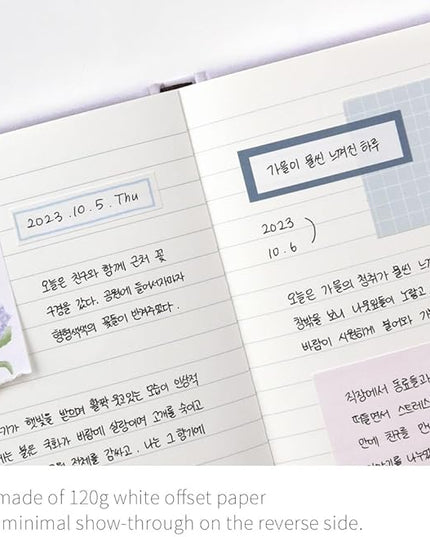 2023.10.5. Thu
오늘은 친구와 함께 근처 꽃
구경을 갔다. 공원에 들어서자마자
형형색색의 꽃들이 반겨주었다.
가가 햇빛을 받으며 활짝 웃고있는 모습이 인상적
에는 붉은 국화가 바람에 살랑이며 고개를 숙이고
전체를 감싸고. 나는 그 향기에
가을이 물씬 느껴진 하루
2023
10.6
오늘은 가을의 정취가 물씬 느
창밖을 보니 나뭇잎들이 노랗고
바람이 시원하게 불어와 가
직장에서 동료들과
떠들면서 스트레스
만에 친구를 만
이야기를 나누었
made of 120g white offset paper
minimal show-through on the reverse side.